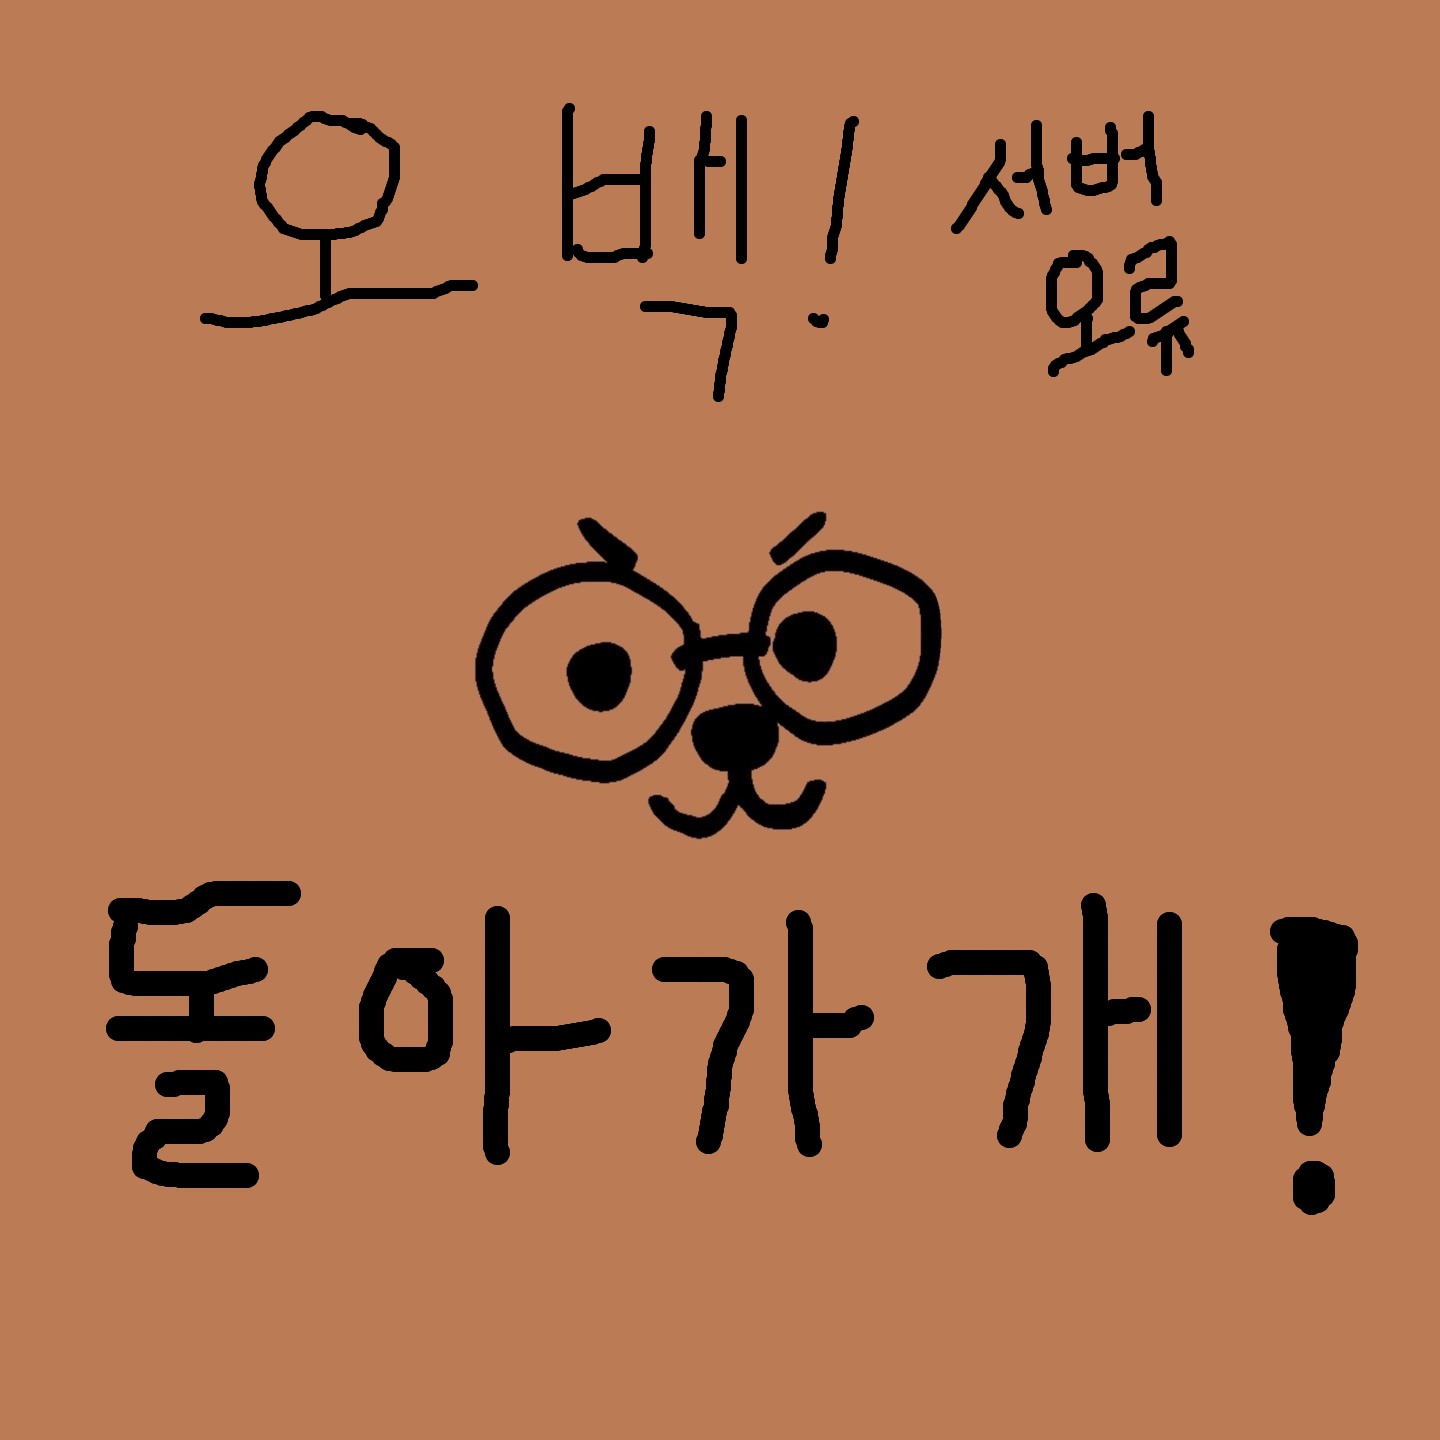 오백! 서버
오류
돌아가개!